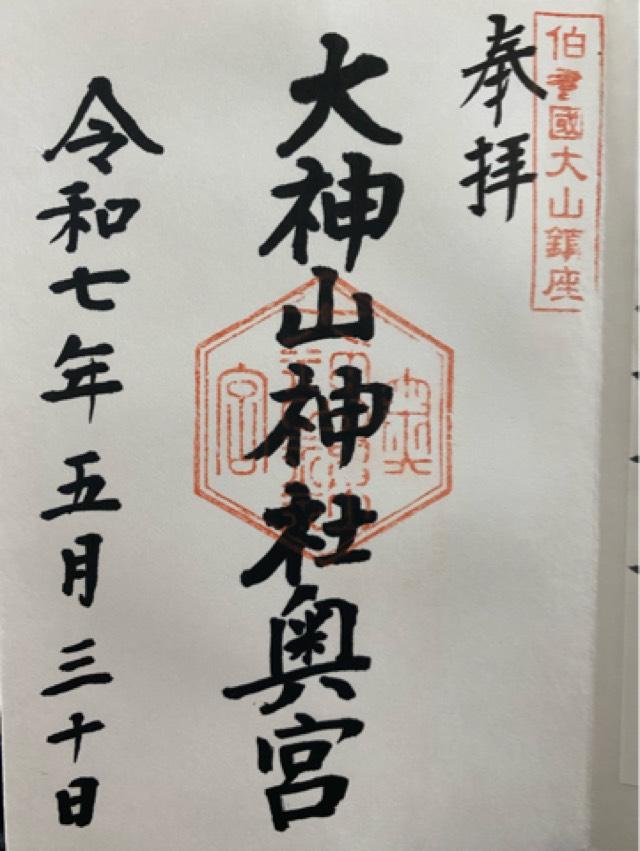 伯耆國大山鎮座
奉拝
大神山神社奥宮
令和七年五月三十日